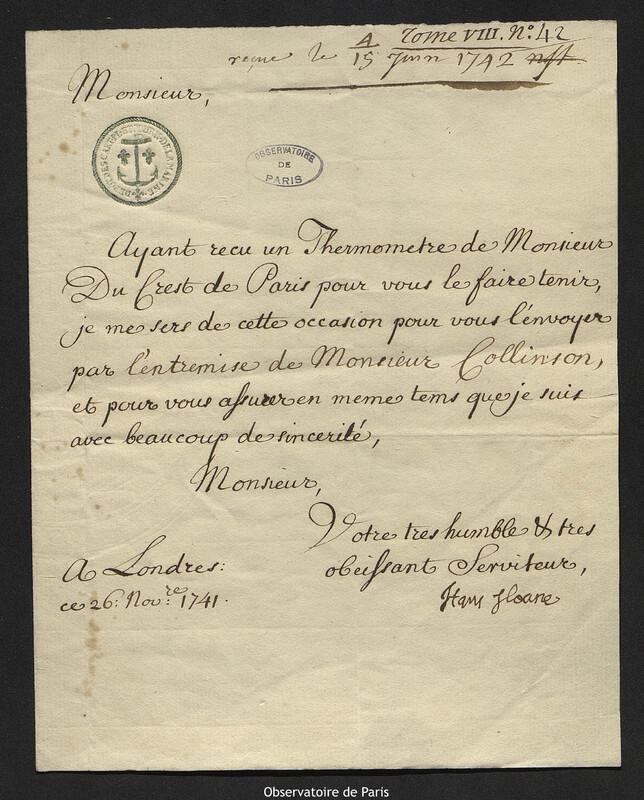 Tome VIII. N.º 42
reçue le 4/15 Juin 1742 nst.
Monsieur,
DEPOT DES CARTES ET PLANS DE LA MARINE
OBSERVATOIRE
DE
PARIS
Ayant recu un Thermometre de Monsieur
Du Crest de Paris pour vous le faire tenir,
je me sers de cette occasion pour vous l'envoyer
par l'entremise de Monsieur Collinson,
et pour vous assurer en meme tems que je suis
avec beaucoup de sincerité,
Monsieur,
Votre tres humble & tres
obeissant Serviteur,
Hans Sloane
A Londres:
ce 26: Nov.re 1741.
Observatoire de Paris